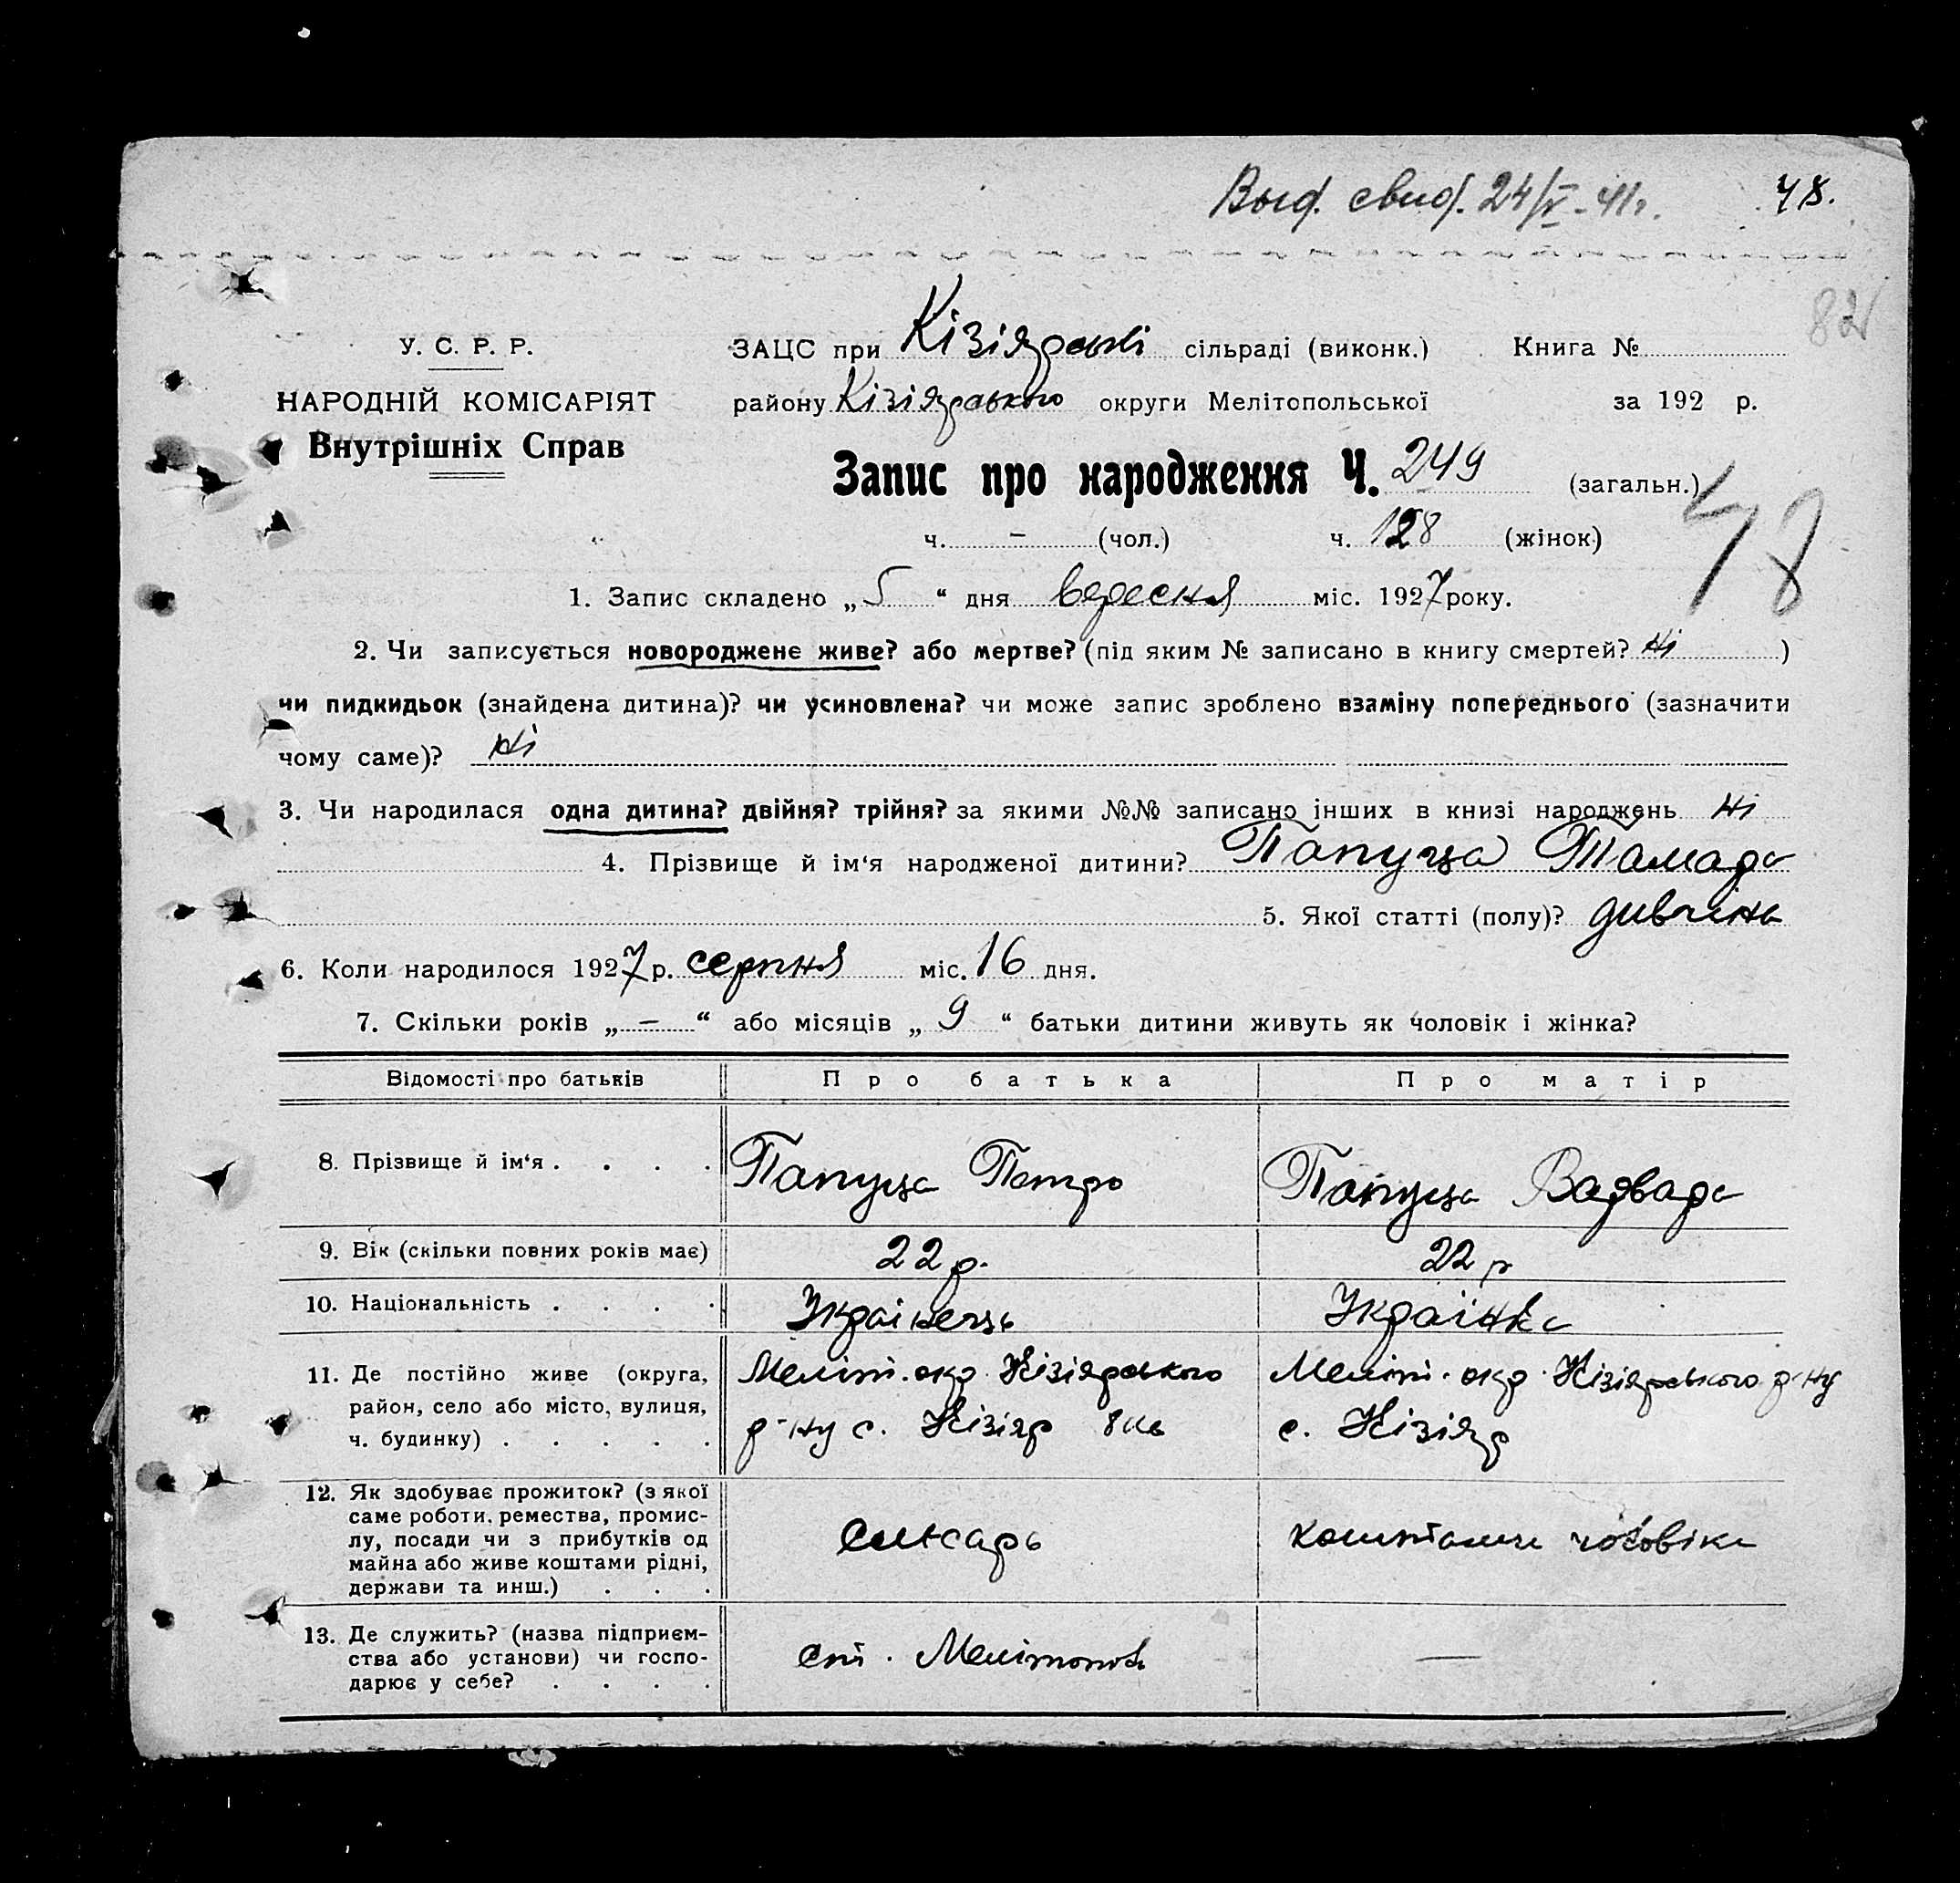 Выд. свид. 24/V-41г. 48.
82
У. С. Р. Р.
НАРОДНІЙ КОМІСАРІЯТ
Внутрішніх Справ
ЗАЦС при Кізіярській сільраді (виконк.) Книга №
району Кізіярського округи Мелітопольської за 192 р.
Запис про народження Ч. 249 (загальн.)
48
ч. – (чол.) ч. 128 (жінок)
1. Запис складено „5“ дня вересня міс. 1927 року.
2. Чи записується новороджене живе? або мертве? (під яким № записано в книгу смертей? ні )
чи пидкидьок (знайдена дитина)? чи усиновлена? чи може запис зроблено взаміну попереднього (зазначити
чому саме)? ні
3. Чи народилася одна дитина? двійня? трійня? за якими №№ записано інших в книзі народжень ні
4. Прізвище й ім‘я народженої дитини? Папуца Тамара
5. Якої статті (полу)? дивчина
6. Коли народилося 1927 р. серпня міс. 16 дня.
7. Скільки років „–“ або місяців „9“ батьки дитини живуть як чоловік і жінка?
Відомості про батьків Про батька Про матір
8. Прізвище й ім‘я . . . . Папуца Петро Папуца Варвара
9. Вік (скільки повних років має) 22 р. 22 р
10. Національність . . . . Українець Українка
11. Де постійно живе (округа, Меліт. окр. Кізіярського Меліт. окр. Кізіярського р-ну
район, село або місто, вулиця, р-ну с. Кізіяр с. Кізіяр
ч. будинку) . . . . .
12. Як здобуває прожиток? (з якої
саме роботи, ремества, промис-
лу, посади чи з прибутків од слюсарь коштами чоловіка
майна або живе коштами рідні,
держави та инш.) . . .
13. Де служить? (назва підприєм-
ства або установи) чи госпо- ст. Мелітополь —
дарює у себе? . . . .